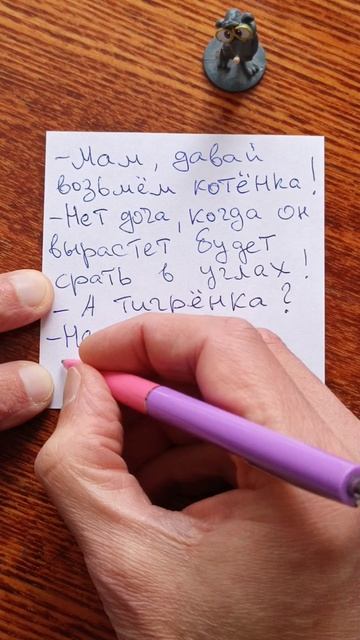 -Мам, давай
возьмём котёнка!
-Нет доча, когда он
вырастет будет
срать в углах!
- А тигрёнка?